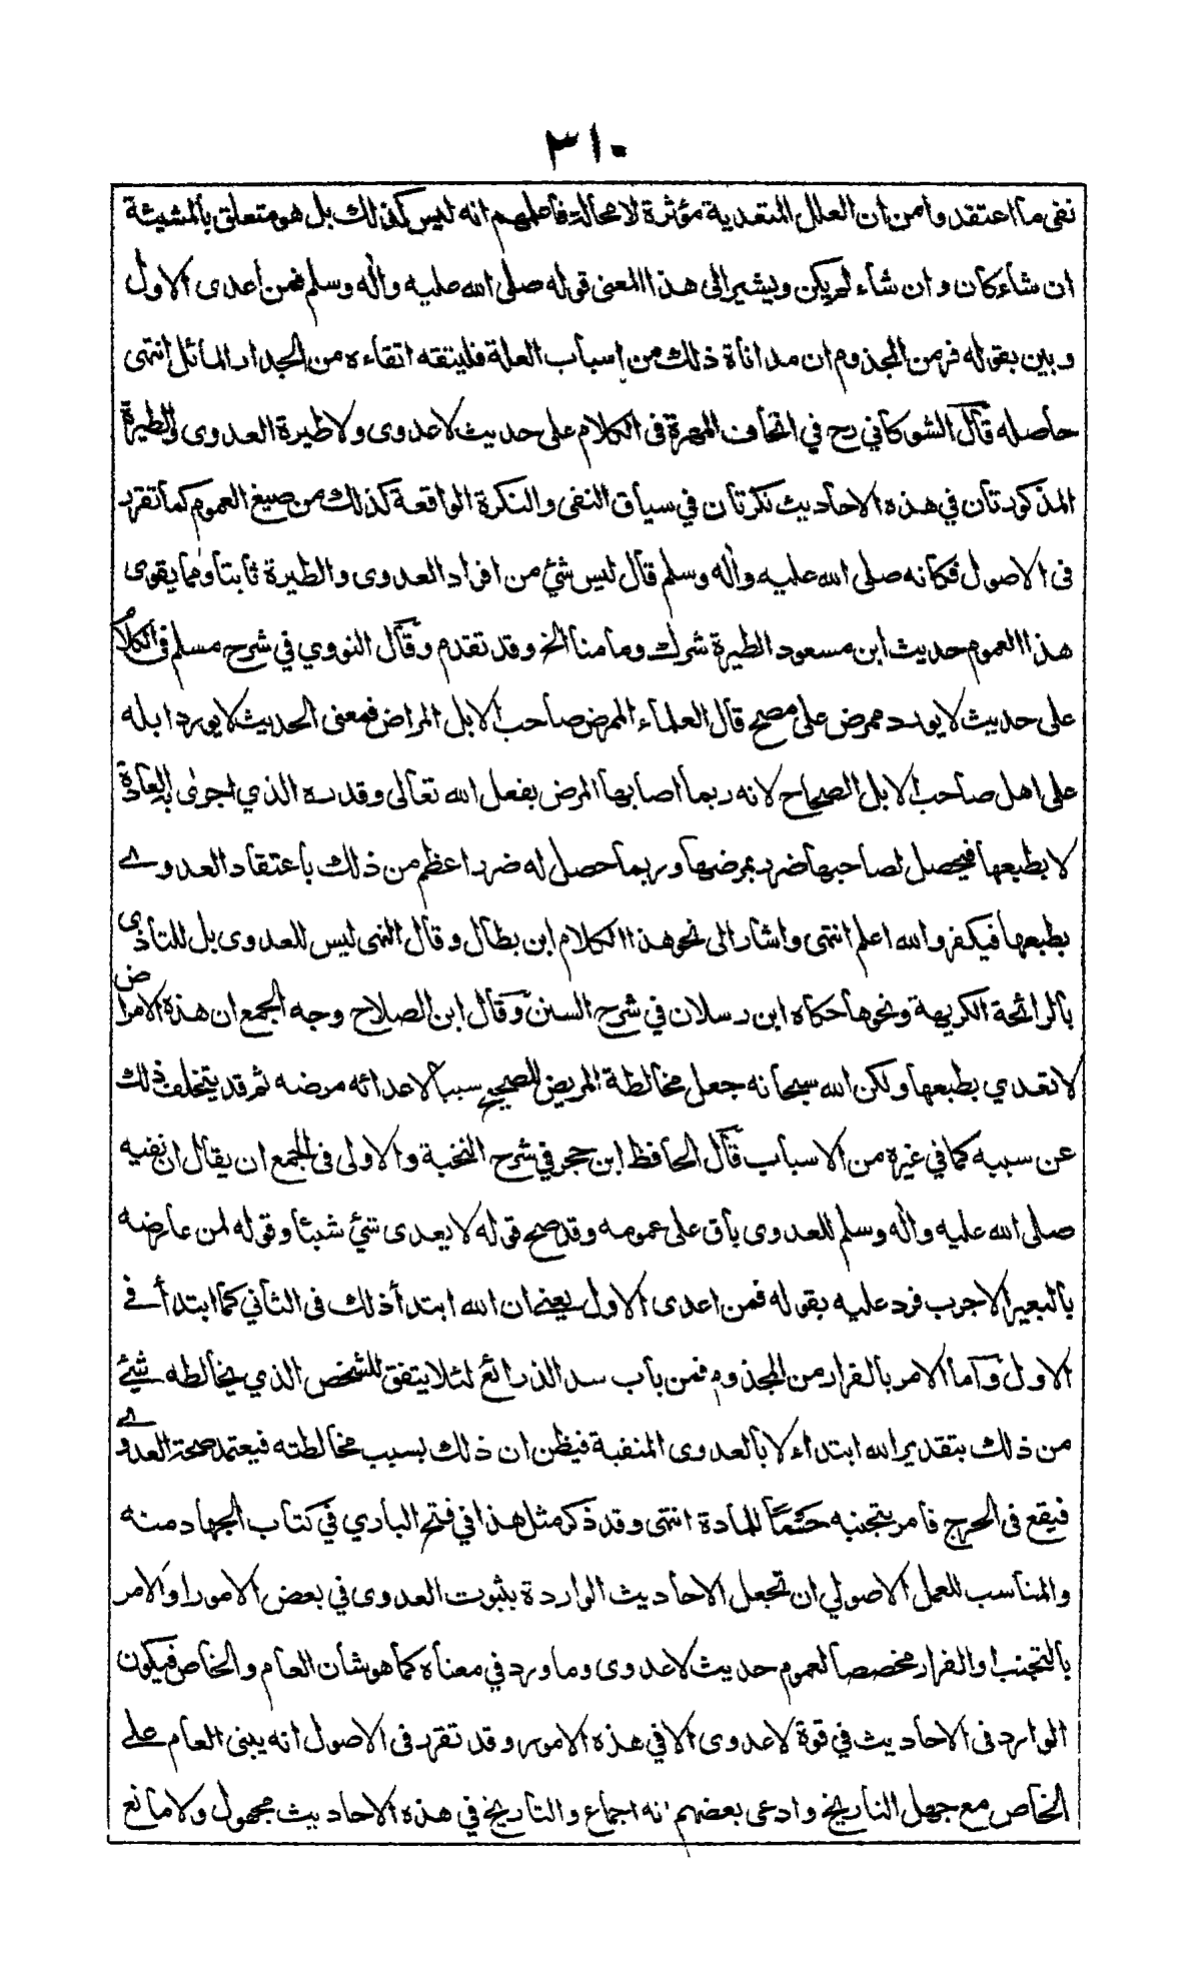 ٣١٠
نفى ما اعتقدوا من ان العلل المتعدية مؤثرة لا محالة فاعلمهم انه ليس كذلك بل هو متعلق بالمشيئة
ان شاء كان وان شاء لم يكن ويشير الى هذا المعنى قوله صلى الله عليه واله وسلم فمن اعدى الاول
وبين بقوله فر من المجذوم ان مداناة ذلك من اسباب العلة فليتقه اتقاءه من الجدار المائل انتهى
حاصله قال الشوكاني رح في اتحاف المهرة فى الكلام على حديث لا عدوى ولا طيرة العدوى والطيرة
المذكورتان في هذه الاحاديث نكرتان في سياق النفى والنكرة الواقعة كذلك من صيغ العموم كما تقرر
فى الاصول فكانه صلى الله عليه واله وسلم قال ليس شئ من افراد العدوى والطيرة ثابتا ومما يقوى
هذا العموم حديث ابن مسعود الطيرة شرك وما منا الخ وقد تقدم وقال النووي في شرح مسلم فى الكلام
على حديث لا يورد ممرض على مصح قال العلماء الممرض صاحب الابل المراض فمعنى الحديث لا يورد ابله
على اهل صاحب الابل الصحاح لانه ربما اصابها المرض بفعل الله تعالى وقدره الذي اجرى به العادة
لا بطبعها فيحصل لصاحبها ضرر بمرضها وربما حصل له ضرر اعظم من ذلك باعتقاد العدوى
بطبعها فيكفر والله اعلم انتهى واشار الى نحو هذا الكلام ابن بطال وقال النهى ليس للعدوى بل للتأذى
بالرائحة الكريهة ونحوها حكاه ابن رسلان في شرح السنن وقال ابن الصلاح وجه الجمع ان هذه الامراض
لا تعدي بطبعها ولكن الله سبحانه جعل مخالطة المريض للصحيح سببا لاعدائه مرضه ثم قد يتخلف ذلك
عن سببه كما في غيره من الاسباب قال الحافظ ابن حجر في شرح النخبة والاولى فى الجمع ان يقال ان نفيه
صلى الله عليه واله وسلم للعدوى باق على عمومه وقد صح قوله لا يعدى شئ شيئا وقوله لمن عارضه
بالبعير الاجرب فرد عليه بقوله فمن اعدى الاول يعنى ان الله ابتدأ ذلك فى الثاني كما ابتدأ فى
الاول واما الامر بالفرار من المجذوم فمن باب سد الذرائع لئلا يتفق للشخص الذي يخالطه شئ
من ذلك بتقدير الله ابتداء لا بالعدوى المنفية فيظن ان ذلك بسبب مخالطته فيعتمد صحة العدوى
فيقع فى الحرج فامر بتجنبه حسما للمادة انتهى وقد ذكر مثل هذا في فتح الباري في كتاب الجهاد منه
والمناسب للعمل الاصولي ان تجعل الاحاديث الواردة بثبوت العدوى في بعض الامور او الامر
بالتجنب او الفرار مخصصا لعموم حديث لا عدوى وما ورد في معناه كما هو شان العام والخاص فيكون
الوارد فى الاحاديث في قوة لا عدوى الا في هذه الامور وقد تقرر فى الاصول انه يبنى العام على
الخاص مع جهل التاريخ وادعى بعضهم انه اجماع والتاريخ في هذه الاحاديث مجهول ولا مانع